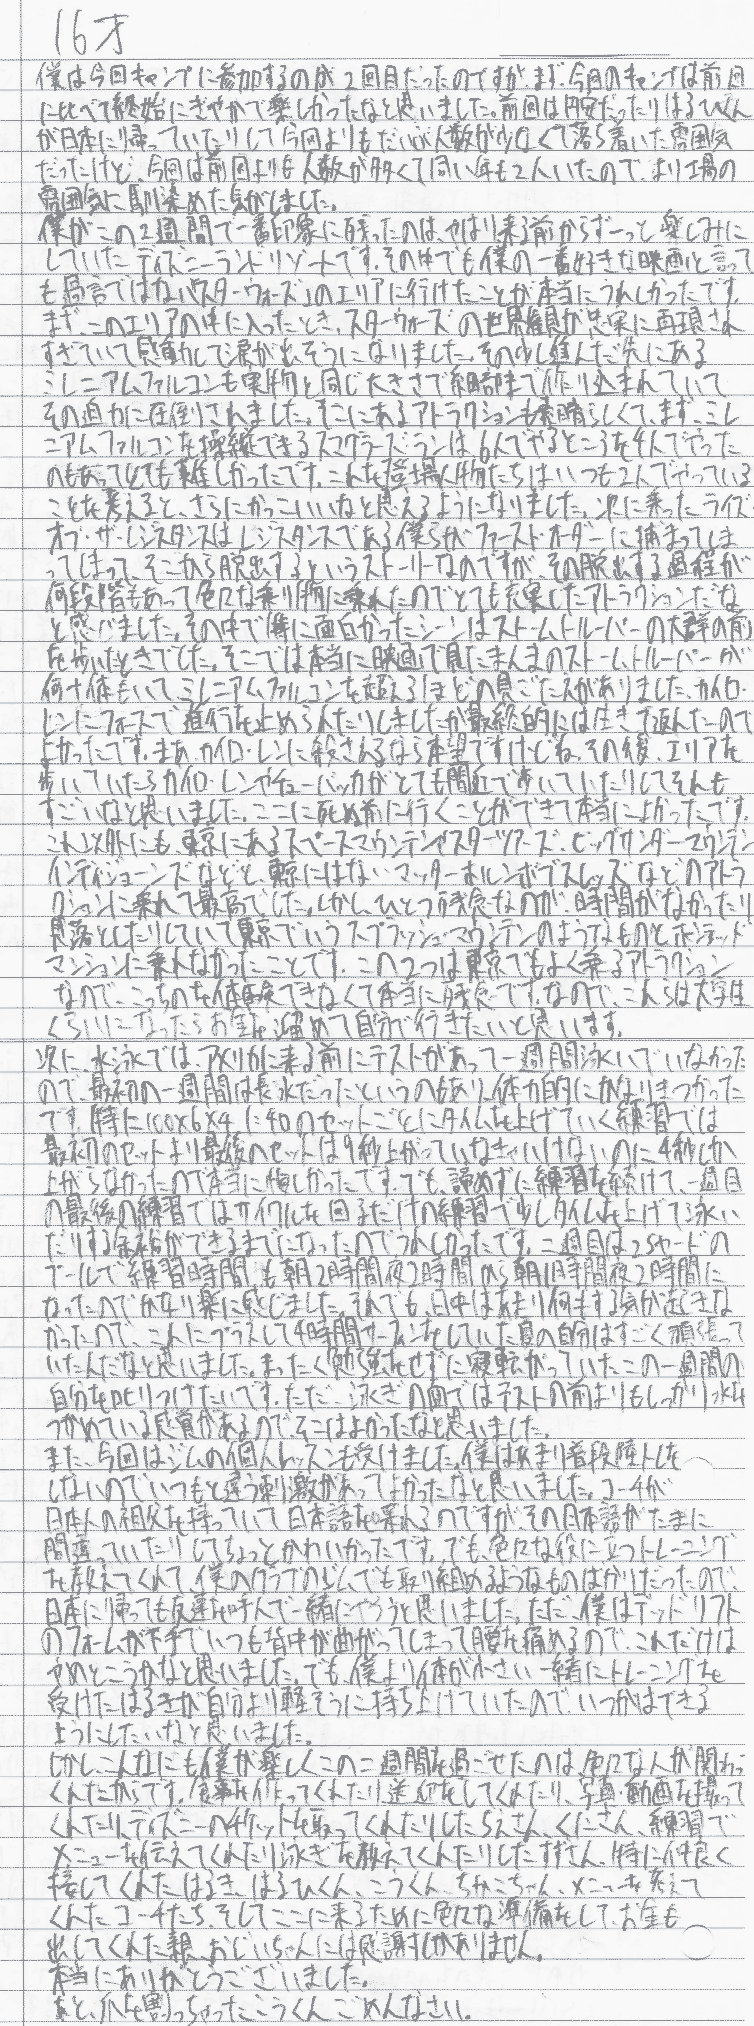 16才
僕は今回キャンプに参加するのが2回目だったのですが、まず、今回のキャンプは前回
に比べて終始にぎやかで楽しかったなと思いました。前回は円安だったりはるひくん
が日本に帰っていたりして今回よりもだいぶ人数が少なくて落ち着いた雰囲気
だったけど、今回は前回よりも人数が多くて同い年も2人いたので、より場の
雰囲気に馴染めた気がしました。
僕がこの2週間で一番印象に残ったのは、やはり来る前からずーっと楽しみに
していたディズニーランドリゾートです。その中でも僕の一番好きな映画と言って
も過言ではない「スターウォーズ」のエリアに行けたことが本当にうれしかったです。
まず、このエリアの中に入ったとき、スターウォーズの世界観が忠実に再現され
すぎていて感動して涙が出そうになりました。その少し進んだ先にある
ミレニアムファルコンも実物と同じ大きさで細部まで作り込まれていて
その迫力に圧倒されました。そこにあるアトラクションも素晴らしくて、まず、ミレ
ニアムファルコンを操縦できるスマグラーズ・ランは、6人でやるところを4人でやった
のもあってとても難しかったです。これを登場人物たちはいつも2人でやっている
ことを考えると、さらにかっこいいなと思えるようになりました。次に乗ったライズ・
オブ・ザ・レジスタンスはレジスタンスである僕らがファースト・オーダーに捕まってしま
ってしまって、そこから脱出するというストーリーなのですが、その脱出する過程が
何段階もあって色々な乗り物に乗れたのでとても充実したアトラクションだな
と感じました。その中で特に面白かったシーンはストームトルーパーの大群の前
を歩いたときでした。そこでは本当に映画で見たまんまのストームトルーパーが
何十体もいて、ミレニアムファルコンを超えるほどの見ごたえがありました。カイロ・
レンにフォースで進行を止められたりしましたが最終的には生きて返れたので
よかったです。まあ、カイロ・レンに殺されるなら本望ですけどね。その後、エリアを
歩いていたらカイロ・レンやチューバッカがとても間近で歩いていたりしてそれも
すごいなと思いました。ここに死ぬ前に行くことができて本当によかったです。
これ以外にも、東京にあるスペースマウンテンやスターツアーズ・ビッグサンダーマウンテン
インディジョーンズなどと、東京にはないマッターホルンボブスレッズなどのアトラ
クションに乗れて最高でした。しかし、ひとつ残念なのが、時間がなかったり
見落としたりしていて東京でいうスプラッシュマウンテンのようなものとホンテッド
マンションに乗れなかったことです。この2つは東京でもよく乗るアトラクション
なので、こっちのを体験できなくて本当に残念です。なので、これらは大学生
くらいになったらお金を溜めて自分で行きたいと思います。
次に、水泳では、アメリカに来る前にテストがあって一週間泳いでいなかった
ので、最初の一週間は長水だったというのもあり、体力的にかなりきつかった
です。特に100×6×4 1:40のセットごとにタイムを上げていく練習では
最初のセットより最後のセットは9秒上がっていなきゃいけないのに4秒しか
上がらなかったので本当に悔しかったです。でも、諦めずに練習を続けて、一週目
の最後の練習ではサイクルを回るだけの練習で少しタイムを上げて泳い
だりする余裕ができるまでになったのでうれしかったです。二週目は25ヤードの
プールで練習時間も朝2時間夜2時間から朝1時間夜2時間に
なったのでかなり楽に感じました。それでも、日中はあまり何もする気が起きな
かったので、これにプラスして4時間サーフィンをしていた夏の自分はすごく頑張って
いたんだなと思いました。まったく勉強をせずに寝転がっていたこの一週間の
自分を叱りつけたいです。ただ、泳ぎの面ではテストの前よりもしっかり水を
つかめている感覚があるので、そこはよかったなと思いました。
また、今回はジムの個人レッスンも受けました。僕はあまり普段陸トレを
しないのでいつもと違う刺激があってよかったなと思いました。コーチが
日本人の祖父を持っていて日本語を喋れるのですが、その日本語がたまに
間違っていたりしてちょっとかわいかったです。でも、色々な役に立つトレーニング
を教えてくれて、僕のクラブのジムでも取り組めるようなものばかりだったので、
日本に帰っても友達を呼んで一緒にやろうと思いました。ただ、僕はデッドリフト
のフォームが下手でいつも背中が曲がってしまって腰を痛めるので、これだけは
やめとこうかなと思いました。でも、僕より体が小さい一緒にトレーニングを
受けたはるきが自分より軽そうに持ち上げていたので、いつかはできる
ようにしたいなと思いました。
しかしこんなにも僕が楽しくこの二週間を過ごせたのは、色々な人が関わって
くれたからです。食事を作ってくれたり、送迎をしてくれたり、写真・動画を撮って
くれたり、ディズニーのチケットを取ってくれたりしたちえさん、くにさん、練習で
メニューを伝えてくれたり泳ぎを教えてくれたりしたすずさん、特に仲良く
接してくれたはるき、はるひくん、こうくん、ちかこちゃん、メニューを考えて
くれたコーチたち、そしてここに来るために色々な準備をして、お金も
出してくれた親、おじいちゃんには感謝しかありません。
本当にありがとうございました。
あと、爪を割っちゃったこうくんごめんなさい。